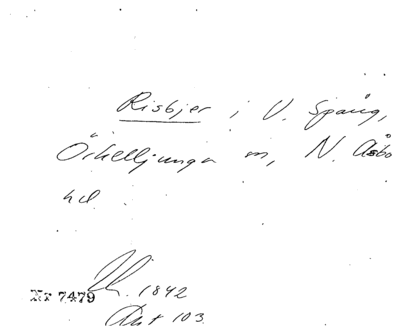 Risbjer i V. Spång,
Örkelljunga sn, N. Åsbo
hd
1842
Nr 7479
Akt 103